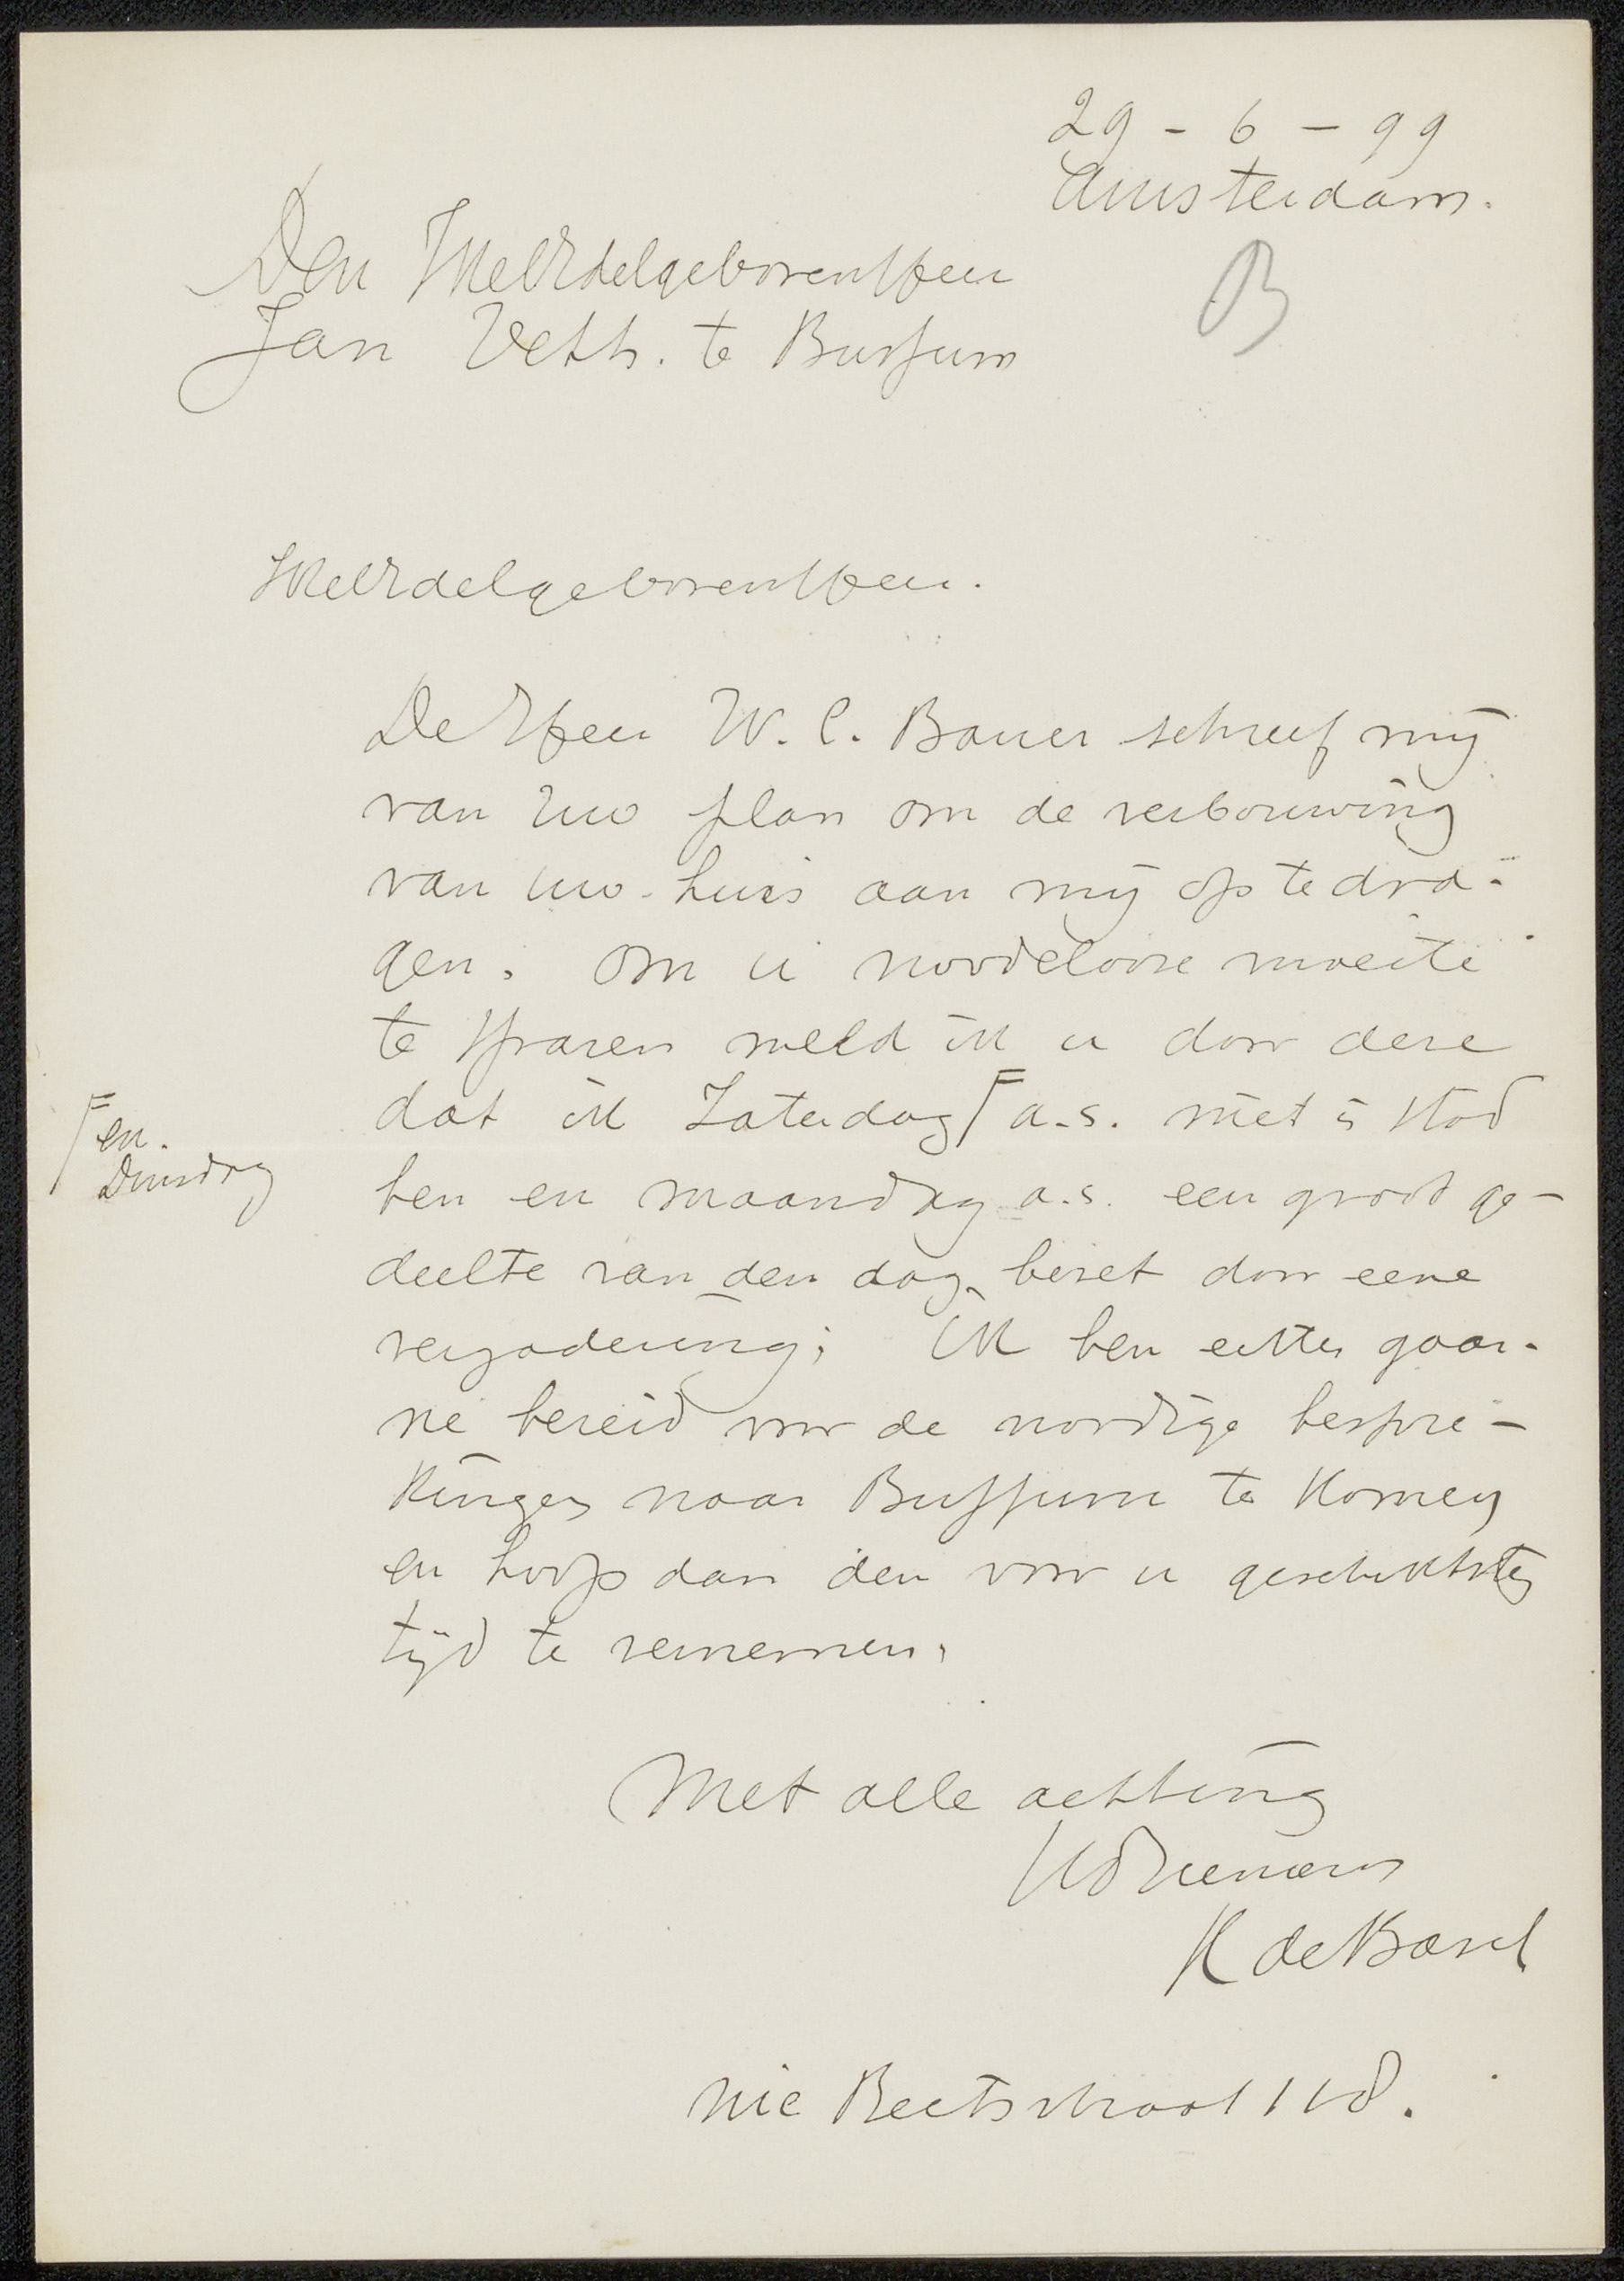 29 - 6 - 99
Amsterdam.
B
Den WelEdelgeborenHeer
Jan Veth. te Bussum
WelEdelgeborenHeer.
De Heer W. C. Bauer schreef mij
van uw plan om de verbouwing
van uw huis aan mij op te dra-
gen. Om u noodelooze moeite
te sparen meld ik u door deze
dat ik Zaterdag ┌ a.s. niet i stad
┌ en
Dinsdag
ben en maandag a.s. een groot ge-
deelte van den dag bezet door eene
vergadering; Ik ben echter gaar-
ne bereid voor de noodige bespre-
kingen naar Bussum te komen
en hoop dan den voor u geschiktsten
tijd te vernemen.
Met alle achting
UEdienaar
K de Bazel
Nic Beetsstraat 118.